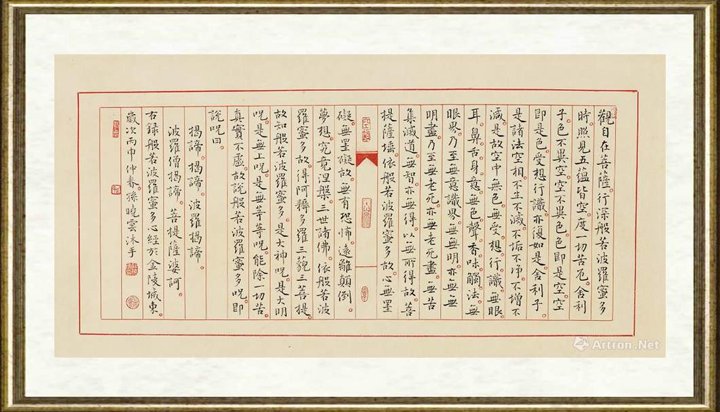 觀自在菩薩。行深般若波羅蜜多
時。照見五蘊皆空。度一切苦厄。舍利
子。色不異空。空不異色。色即是空。空
即是色。受想行識。亦復如是。舍利子。
是諸法空相。不生不滅。不垢不淨。不增不
減。是故空中無色。無受想行識。無眼
耳鼻舌身意。無色聲香味觸法。無
眼界。乃至無意識界。無無明。亦無無
明盡。乃至無老死。亦無老死盡。無苦
集滅道。無智亦無得。以無所得故。菩
提薩埵。依般若波羅蜜多故。心無罣
礙。無罣礙故。無有恐怖。遠離顛倒。
夢想。究竟涅槃。三世諸佛。依般若波
羅蜜多故。得阿耨多羅三藐三菩提。
故知般若波羅蜜多。是大神呪。是大明
呪。是無上呪。是無等等呪。能除一切苦。
真實不虛。故說般若波羅蜜多呪。即
說呪曰。
揭諦。揭諦。波羅揭諦。
波羅僧揭諦。菩提薩婆訶。
右錄般若波羅蜜多心經於金陵城東
歲次丙申仲春孫曉雲沐手
Artron.Net